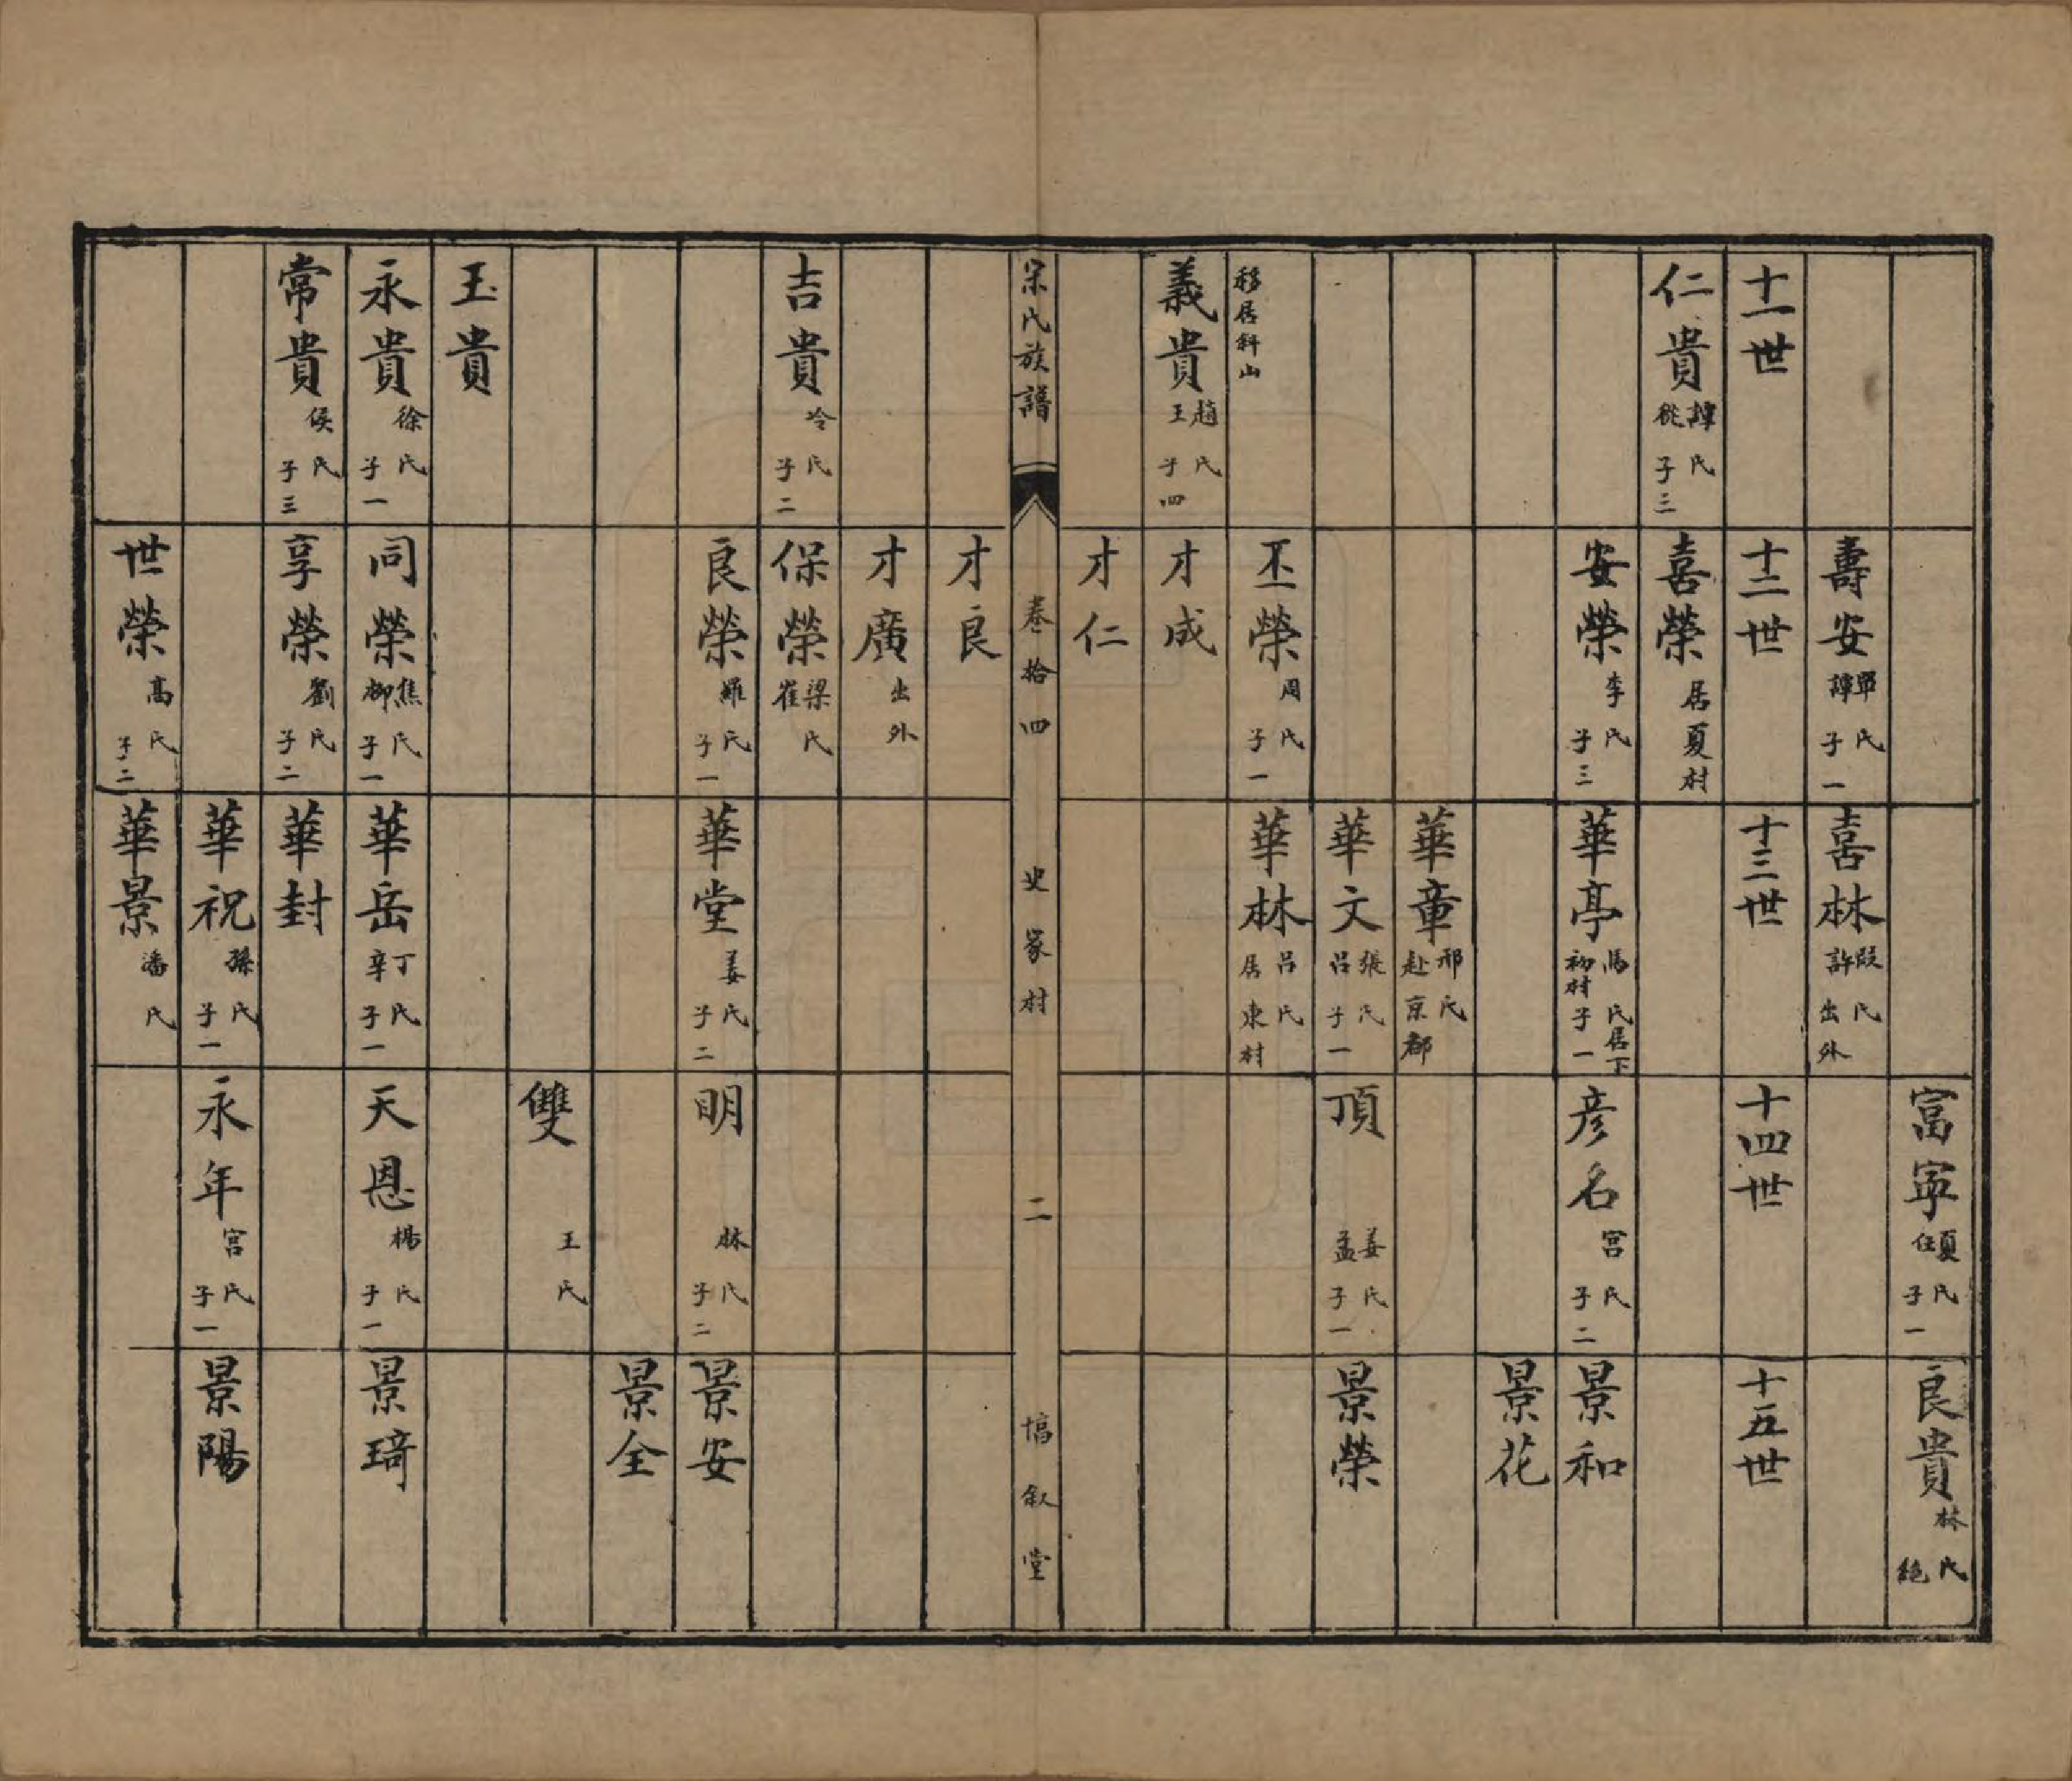 富寧 夏任氏 子一
良貴 林氏 絕
壽安 單譚氏 子一
喜林 段許氏 出外
十一世
十二世
十三世
十四世
十五世
仁貴 譚姚氏 子三
喜榮 居夏村
安榮 李氏 子三
華亭 馮氏 居下初村 子一
彥名 宮氏 子二
景和
景花
華章 邢氏 赴京都
華文 張呂氏 子一
頂 姜孟氏 子一
景榮
移居斜山
丕榮 周氏 子一
華林 呂氏 居東村
義貴 趙王氏 子四
才成
才仁
宋氏族譜 卷拾四 史家村 二 惇叙堂
才良
才廣 出外
吉貴 冷氏 子二
保榮 梁崔氏
良榮 羅氏 子一
華堂 姜氏 子二
明 林氏 子二
景安
景全
雙 王氏
玉貴
永貴 徐氏 子一
同榮 焦柳氏 子一
華岳 丁辛氏 子一
天恩 楊氏 子一
景琦
常貴 侯氏 子三
享榮 劉氏 子二
華封
華祝 孫氏 子一
永年 宮氏 子一
景陽
世榮 高氏 子二
華景 潘氏